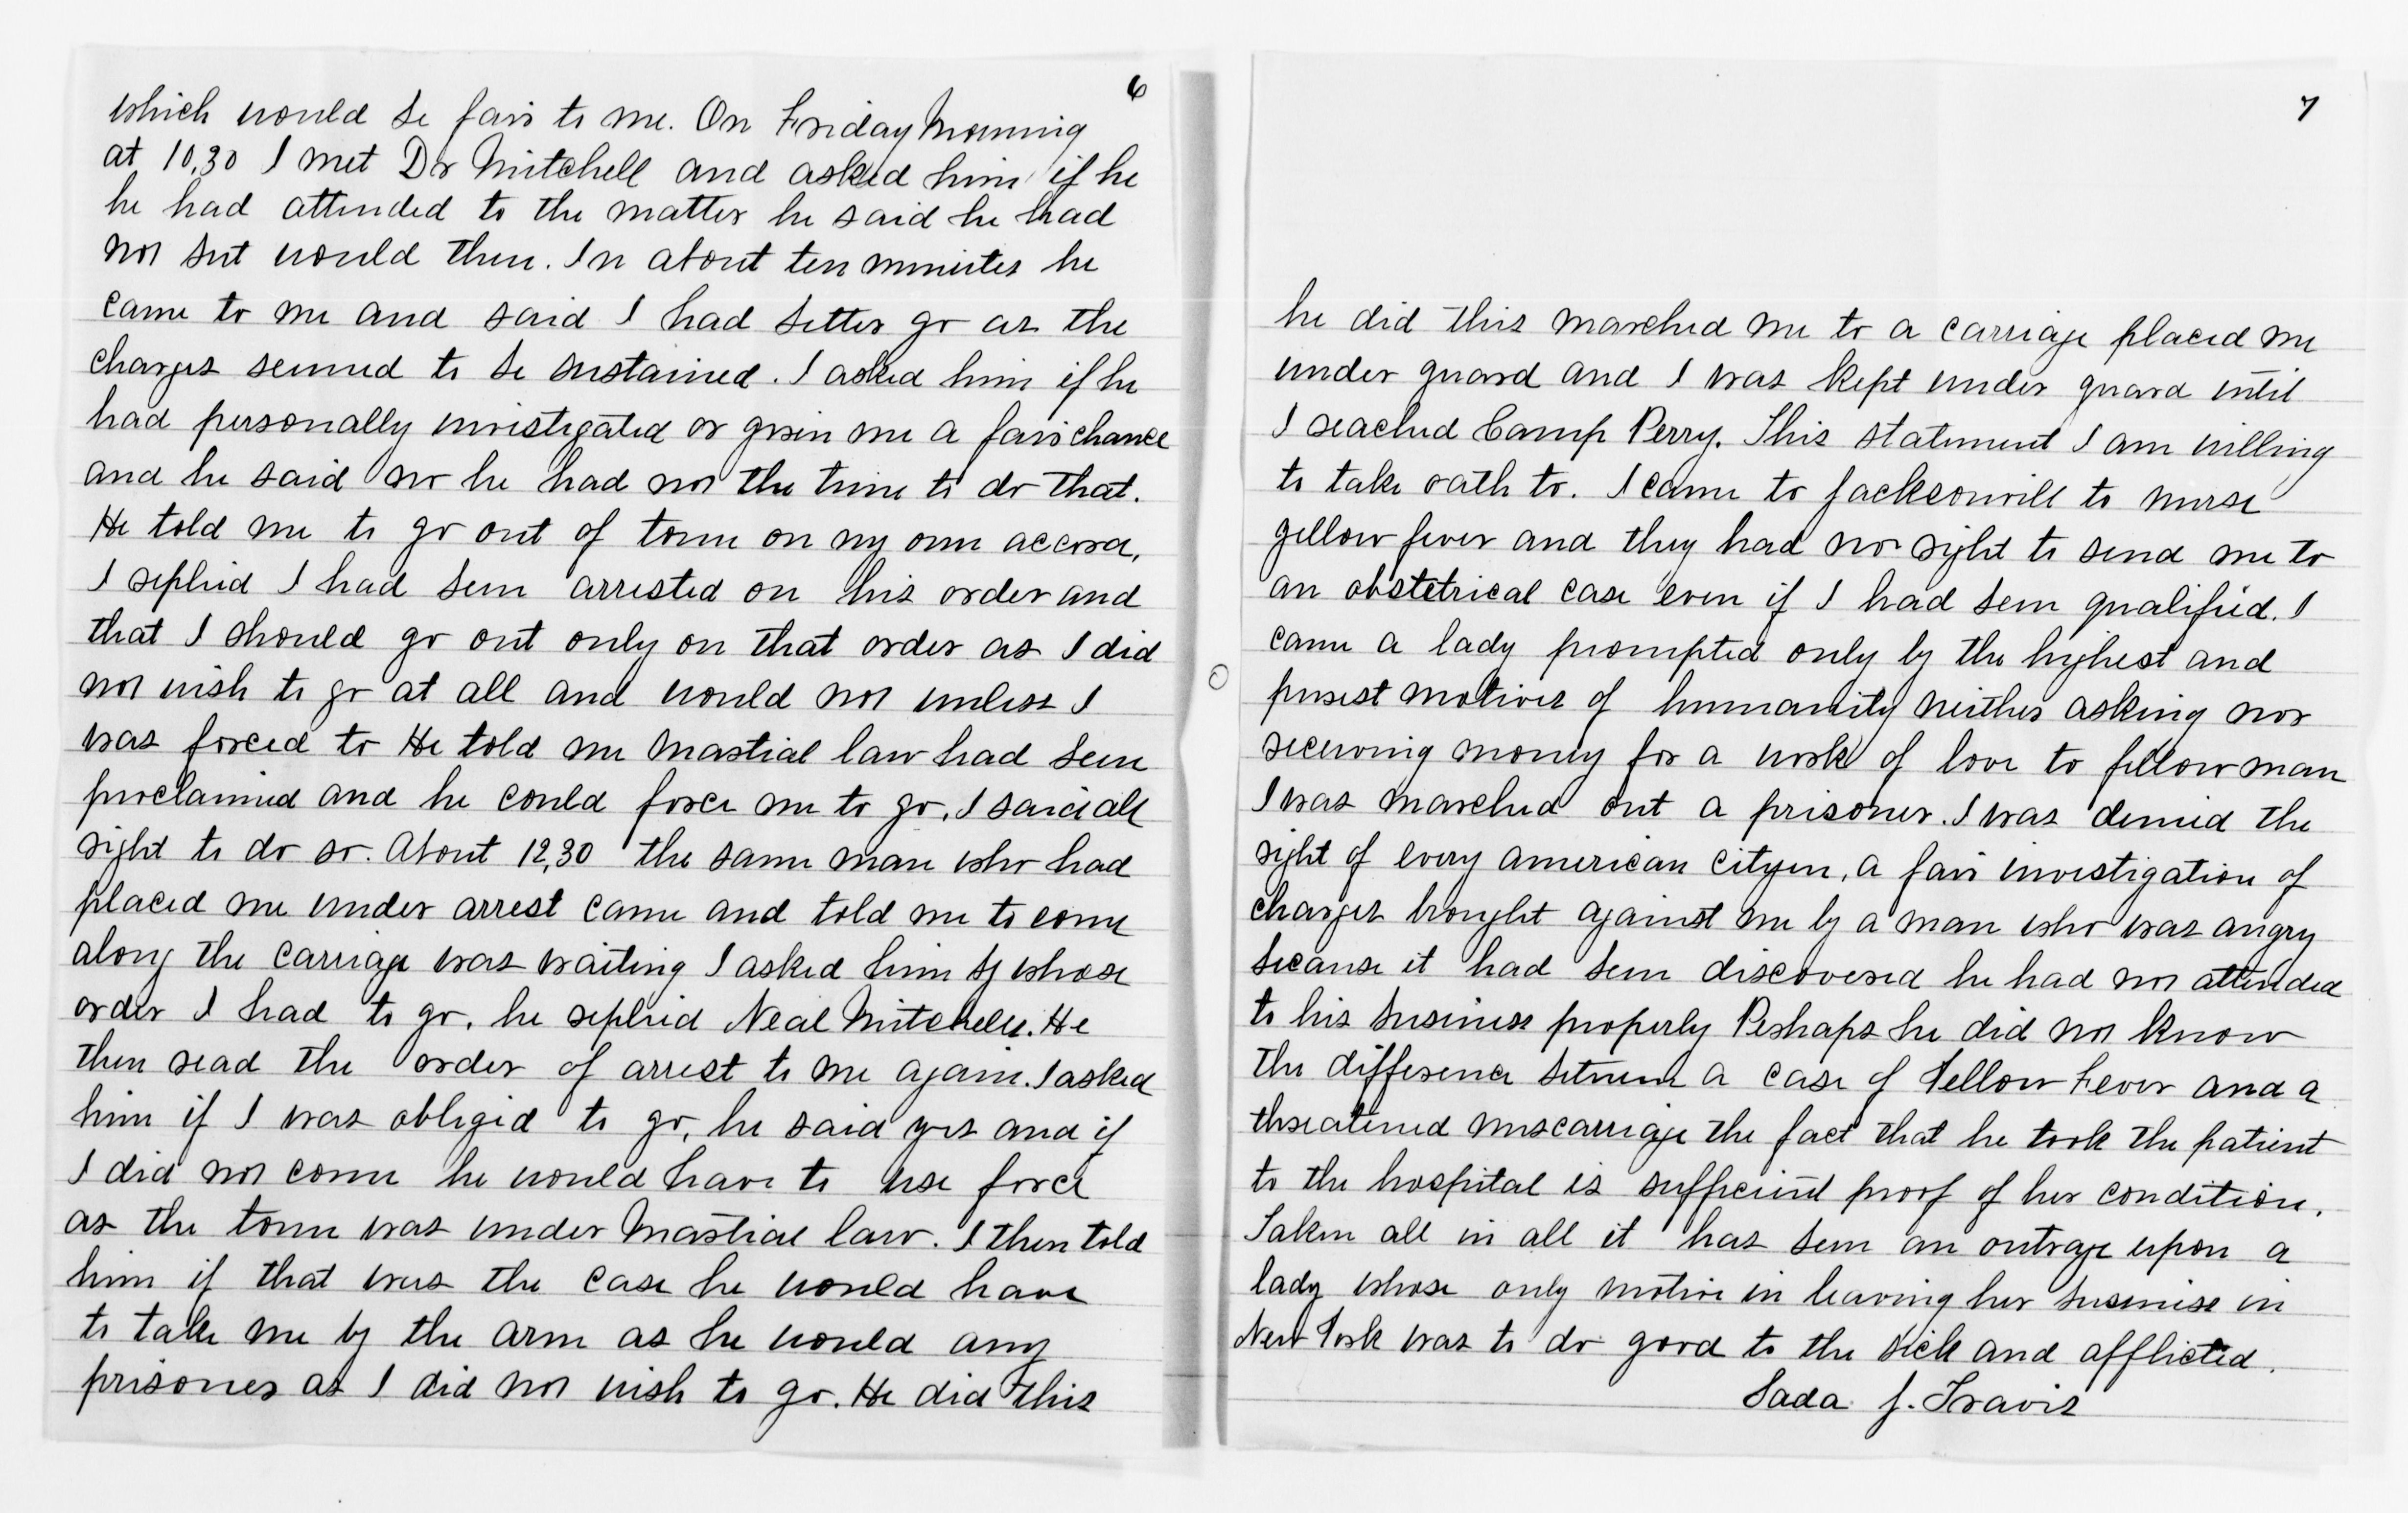 6
which would be fair to me. On Friday Morning
at 10,30 I met Dr Mitchell and asked him if he
he had attended to the matter he said he had
not but would then. In about ten minutes he
came to me and said I had better go as the
charges seemed to be sustained. I asked him if he
had personally investigated or given me a fair chance
and he said no he had not the time to do that.
He told me to go out of town on my own accord,
I replied I had been arrested on his order and
that I should go out only on that order as I did
not wish to go at all and would not unless I
was forced to He told me Martial law had been
proclaimed and he could force me to go, I said all
right to do so. About 12,30 the same man who had
placed me under arrest came and told me to come
along the carriage was waiting I asked him by whose
order I had to go, he replied Neal Mitchells. He
then read the order of arrest to me again. I asked
him if I was obliged to go, he said yes and if
I did not come he would have to use force
as the town was under Martial law. I then told
him if that was the case he would have
to take me by the arm as he would any
prisoner as I did not wish to go. He did this
7
he did this marched me to a carriage placed me
under guard and I was kept under guard until
I reached Camp Perry. This statement I am willing
to take oath to. I came to Jacksonvill to nurse
yellow fever and they had no right to send me to
an obstetrical case even if I had been qualified. I
came a lady prompted only by the highest and
purest motives of humanity neither asking nor
receiving money for a work of love to fellow man
I was marched out a prisoner. I was denied the
right of every american cityen, a fair investigation of
charges brought against me by a man who was angry
because it had been discovered he had not attended
to his business properly Perhaps he did not know
the difference between a case of Yellow Fever and a
threatened miscarriage the fact that he took the patient
to the hospital is sufficient proof of her condition.
Taken all in all it has been an outrage upon a
lady whose only motive in leaving her business in
New York was to do good to the sick and afflicted.
Sada J. Travis